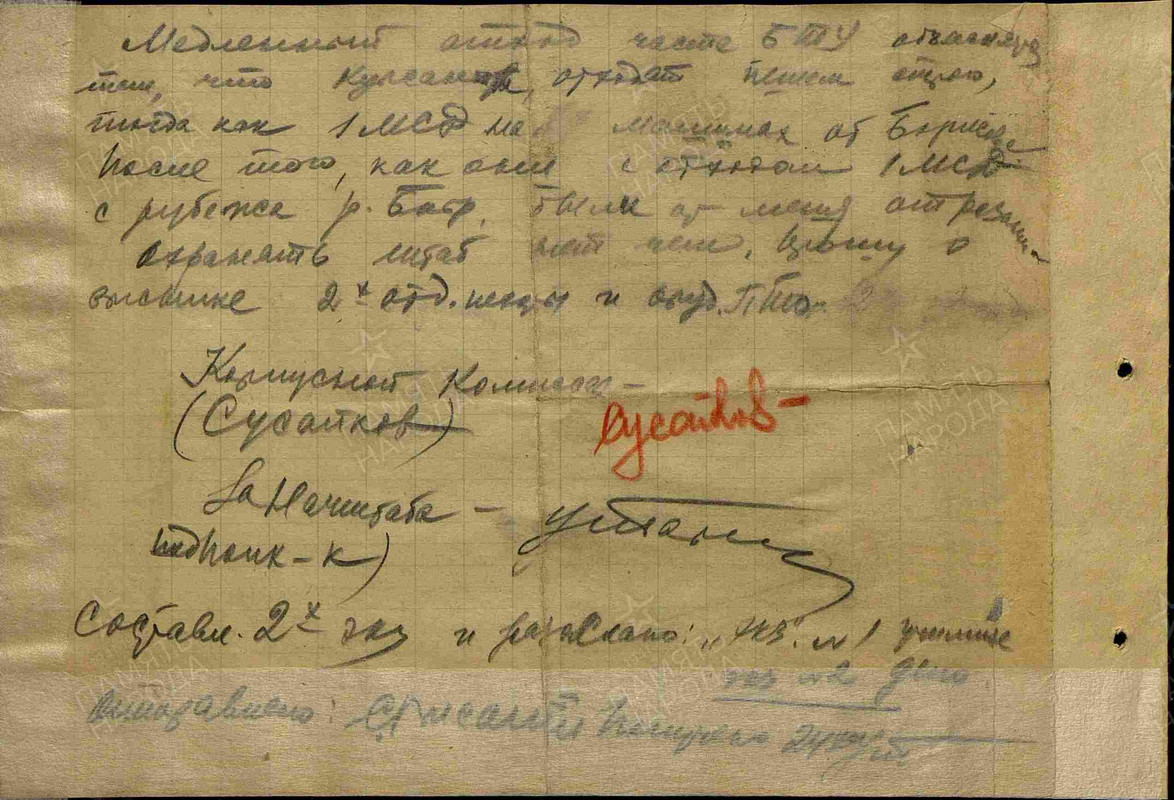 Медленный отход части БТУ объясняется
тем, что курсанты, отходят пешем строю,
тогда как 1 МСД на машинах от Борисова
После того, как они с отходом 1 МСД
с рубежа р. Бобр, были от меня отрезаны
охранять штаб нет чем. Прошу о
высылке 2х отд. пехоты и ПТО
Корпусной Комиссар –
(Сусайков)
Сусайков
За Начштаба –
подполк-к)
Составл. 2х экз и разослано: "экз. № 1
экз № 2 дело
Отправлено:
ПАМЯТЬ НАРОДА